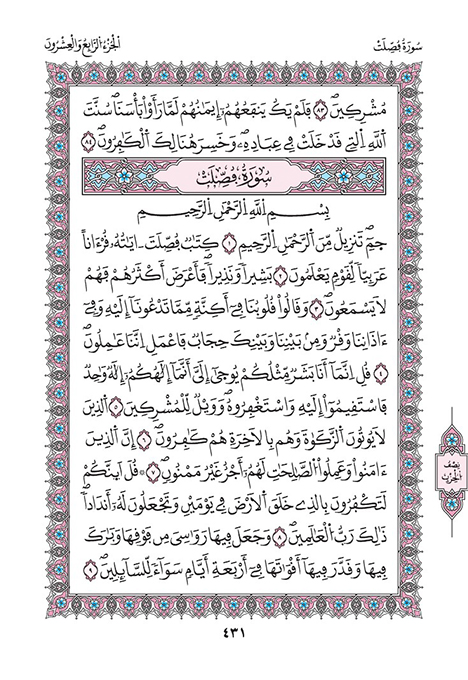 سُورَةُ فُصِّلَتْ
الجُزْءُ الرَّابِعُ وَالْعِشْرُونَ
مُشْرِكِينَ ٨٣ فَلَمْ يَكُ يَنفَعُهُمُۥٓ إِيمَٰنُهُمْ لَمَّا رَأَوْاْ بَأْسَنَا سُنَّتَ
اَللَّهِ اِلتِے قَدْ خَلَتْ فِے عِبَادِهِۦ وَخَسِرَ هُنَالِكَ اَلْكَٰفِرُونَ ٨٤
سُورَةُ فُصِّلَتْ
بِسْمِ اِللَّهِ اِلرَّحْمَٰنِ اِلرَّحِيمِ
حَمِٓ تَنزِيلٌ مِّنَ اَلرَّحْمَٰنِ اِلرَّحِيمِ ١ كِتَٰبٌ فُصِّلَتَ اٰيَٰتُهُۥ قُرْءَاناً
عَرَبِيّاً لِّقَوْمٍ يَعْلَمُونَ ٢ بَشِيراً وَنَذِيراً فَأَعْرَضَ أَكْثَرُهُمْ فَهُمْ
لَا يَسْمَعُونَ ٣ وَقَالُواْ قُلُوبُنَا فِےٓ أَكِنَّةٍ مِّمَّا تَدْعُونَآ إِلَيْهِ وَفِےٓ
ءَاذَانِنَا وَقْرٌ وَمِنۢ بَيْنِنَا وَبَيْنِكَ حِجَابٌ فَاعْمَلِ اِنَّنَا عَٰمِلُونَ
٤ قُلِ اِنَّمَآ أَنَا بَشَرٌ مِّثْلُكُمْ يُوحَىٰٓ إِلَيَّ أَنَّمَآ إِلَٰهُكُمُۥٓ إِلَٰهٌ وَٰحِدٌ
فَاسْتَقِيمُوٓاْ إِلَيْهِ وَاسْتَغْفِرُوهُ وَوَيْلٌ لِّلْمُشْرِكِينَ ٥ اَلذِينَ
لَا يُوتُونَ اَلزَّكَوٰةَ وَهُم بِالَاخِرَةِ هُمْ كَٰفِرُونَ ٦ إِنَّ اَلذِينَ
ءَامَنُواْ وَعَمِلُواْ اُلصَّٰلِحَٰتِ لَهُمُۥٓ أَجْرٌ غَيْرُ مَمْنُونٍ ٧ قُلَ اَينَّكُمْ
لَتَكْفُرُونَ بِالذِے خَلَقَ اَلَارْضَ فِے يَوْمَيْنِ وَتَجْعَلُونَ لَهُۥٓ أَندَاداً
ذَٰلِكَ رَبُّ اُلْعَٰلَمِينَ ٨ وَجَعَلَ فِيهَا رَوَٰسِيَ مِن فَوْقِهَا وَبَٰرَكَ
فِيهَا وَقَدَّرَ فِيهَآ أَقْوَٰتَهَا فِےٓ أَرْبَعَةِ أَيَّامٍ سَوَآءً لِّلسَّآئِلِينَ ٩
نِصْفُ
الْحِزْبِ
٤٣١